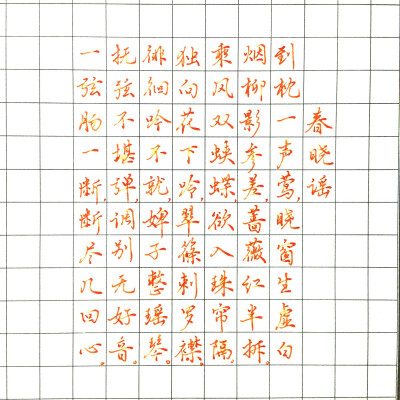 春晓谣
到枕一声莺，晓窗生虚白
烟柳影参差，蔷薇红半拆。
乘风双蛱蝶，欲入珠帘隔。
独向花下吟，翠篠刺罗襟。
徘徊吟不就，婢子整瑶琴。
抚弦不堪弹，调别无好音。
一弦肠一断，断尽几回心。